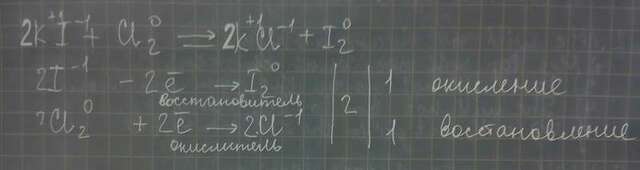 2K⁺¹I⁻¹ + Cl₂⁰ ⟹ 2K⁺¹Cl⁻¹ + I₂⁰
2I⁻¹ - 2e̅ → I₂⁰ | 2 | 1 окисление
восстановитель
?Cl₂⁰ + 2e̅ → 2Cl⁻¹ | | 1 востановление
окислитель